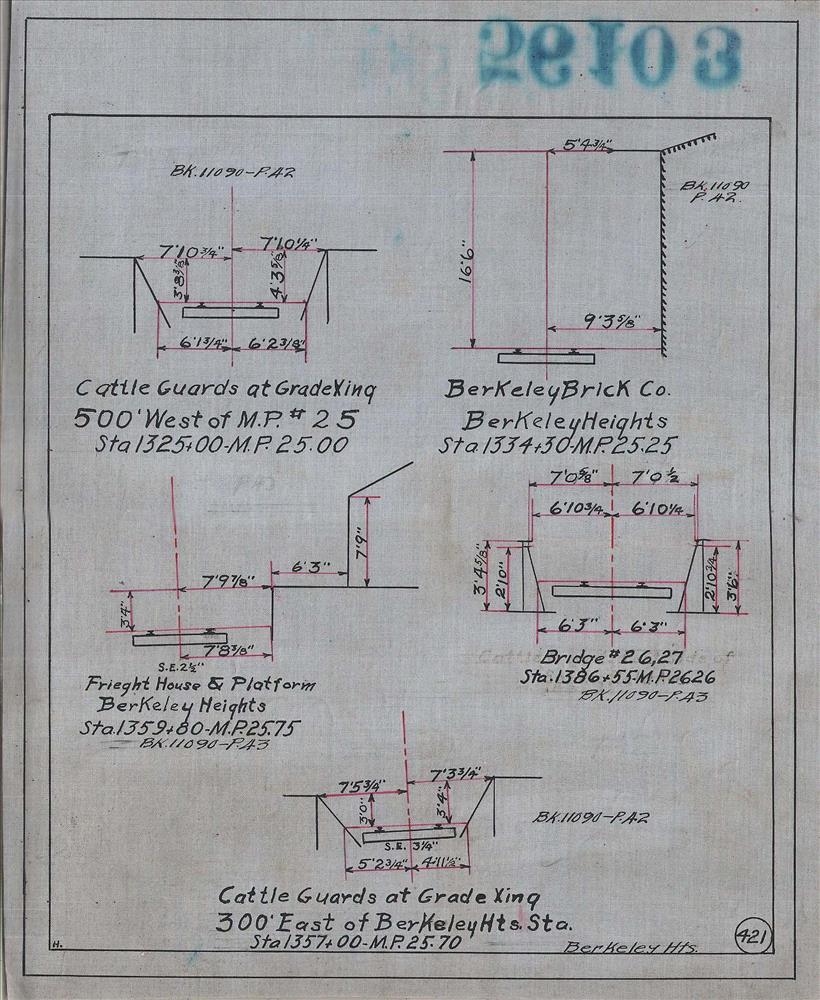 56103
BK.11090-P.42
7'10¾"
7'10¼"
3'8⅜"
4'3⅝"
6'1¾"
6'2⅜"
Cattle Guards at Grade Xing
500' West of M.P. # 25
Sta 1325+00-M.P. 25.00
5'4¾"
BK.11090
P.42.
16'6"
9'3⅝"
Berkeley Brick Co.
Berkeley Heights
Sta 1334+30-M.P. 25.25
6'3"
7'9"
7'9⅞"
3'4"
7'8⅜"
S.E. 2½"
Frieght House & Platform
Berkeley Heights
Sta.1359+80-M.P. 25.75
BK.11090-P.43
7'0⅝"
7'0½
6'10¾"
6'10¼"
3'4⅝"
2'10"
2'10¾"
3'6"
6'3"
6'3"
Bridge # 26,27
Sta.1386+55-M.P. 2626
BK.11090-P.43
7'5¾"
7'3¾"
3'0"
3'4"
S.E. 3¼"
5'2¾"
4'11½"
BK.11090-P.42
Cattle Guards at Grade Xing
300' East of Berkeley Hts. Sta.
Sta 1357+00-M.P. 25.70
H.
Berkeley Hts.
421